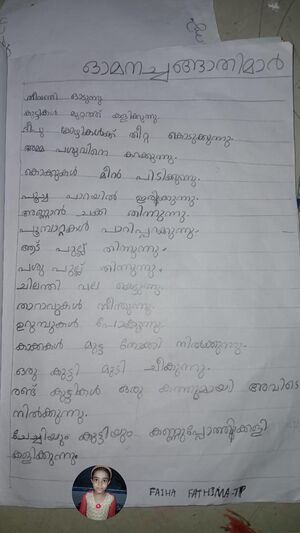 ഓമനച്ചങ്ങാതിമാർ
തീവണ്ടി ഓടുന്നു
കുട്ടികൾ മുറ്റത്ത് കളിക്കുന്നു.
ദീപു കോഴികൾക്ക് തീറ്റ കൊടുക്കുന്നു.
അമ്മ പശുവിനെ കറക്കുന്നു.
കൊക്കുകൾ മീൻ പിടിക്കുന്നു.
പൂച്ച പാറയിൽ ഇരിക്കുന്നു.
അണ്ണാൻ ചക്ക തിന്നുന്നു.
പൂമ്പാറ്റകൾ പാറിപ്പറക്കുന്നു.
ആട് പുല്ല് തിന്നുന്നു.
പശു പുല്ല് തിന്നുന്നു.
ചിലന്തി വല കെട്ടുന്നു.
താറാവുകൾ നീന്തുന്നു.
ഉറുമ്പുകൾ പോകുന്നു.
കാക്കകൾ മുട്ട നോക്കി നിൽക്കുന്നു.
ഒരു കുട്ടി മുടി ചീകുന്നു.
രണ്ട് കുട്ടികൾ ഒരു കന്നുമായി അവിടെ
നിൽക്കുന്നു.
ചേച്ചിയും കുട്ടിയും കണ്ണുപ്പോത്തിക്കളി
കളിക്കുന്നു
FAIHA FATHIMA-TP